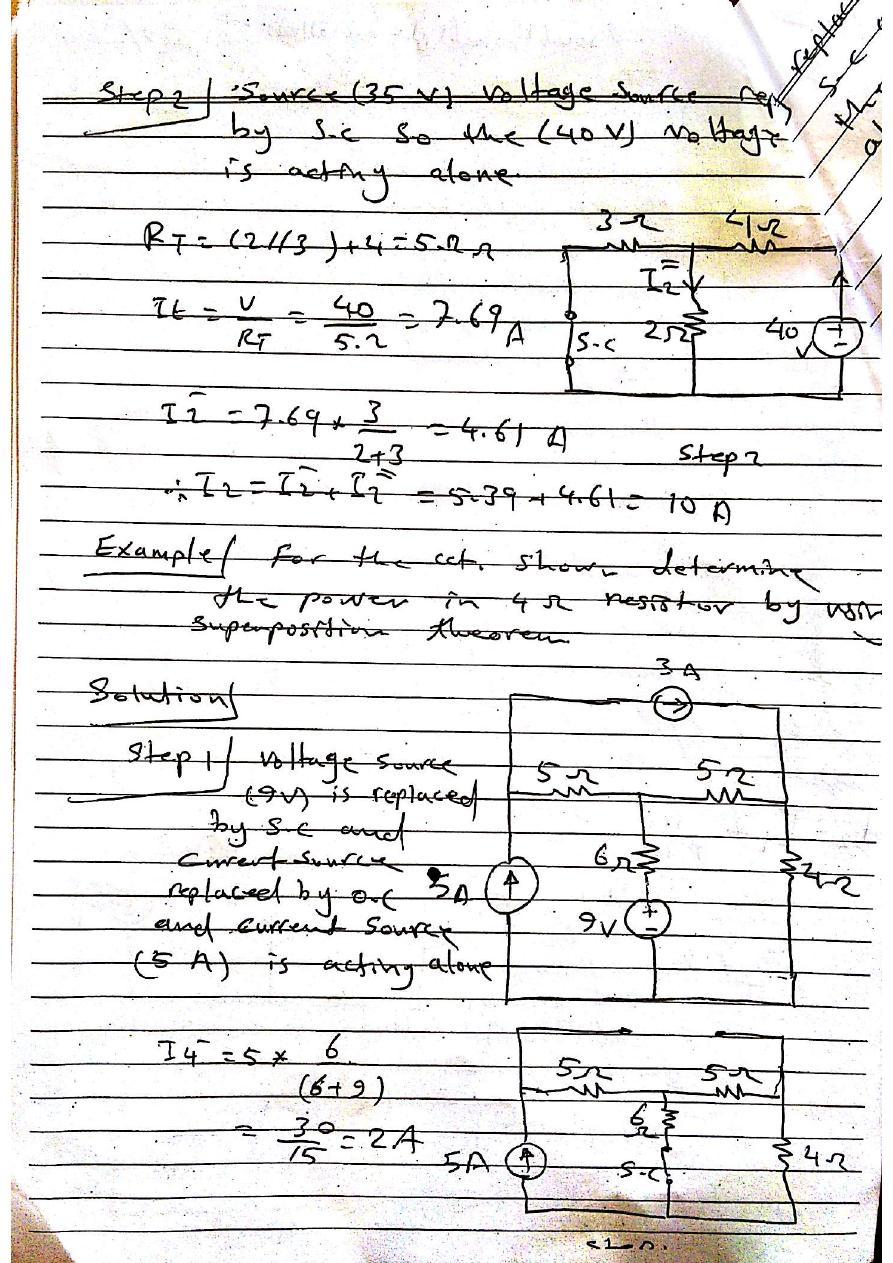 Step 2/ Source (35 V) voltage source rep
by S.C So the (40 V) voltage
is acting alone.
replac
S-C
RT = (2//3) + 4 = 5.2 Ω
3Ω 4Ω
It = V/RT = 40/5.2 = 7.69 A
I2̿
S.C 2Ω 40 V
I2̿ = 7.69 * 3/(2+3) = 4.61 A
Step 2
∴ I2 = I2̄ + I2̿ = 5.39 + 4.61 = 10 A
Example/ For the cct. shown determine
the power in 4 Ω resistor by usin
Superposition theorem
3 A
Solution/
Step 1/ voltage source
(9V) is replaced
by S.C and
Current Source
replaced by o.c
and current Source
(5 A) is acting alone
5Ω 5Ω
6Ω 4Ω
5A 9V
I4̄ = 5 * 6/(6+9)
= 30/15 = 2A
5Ω 5Ω
6Ω
5A S-C 4Ω